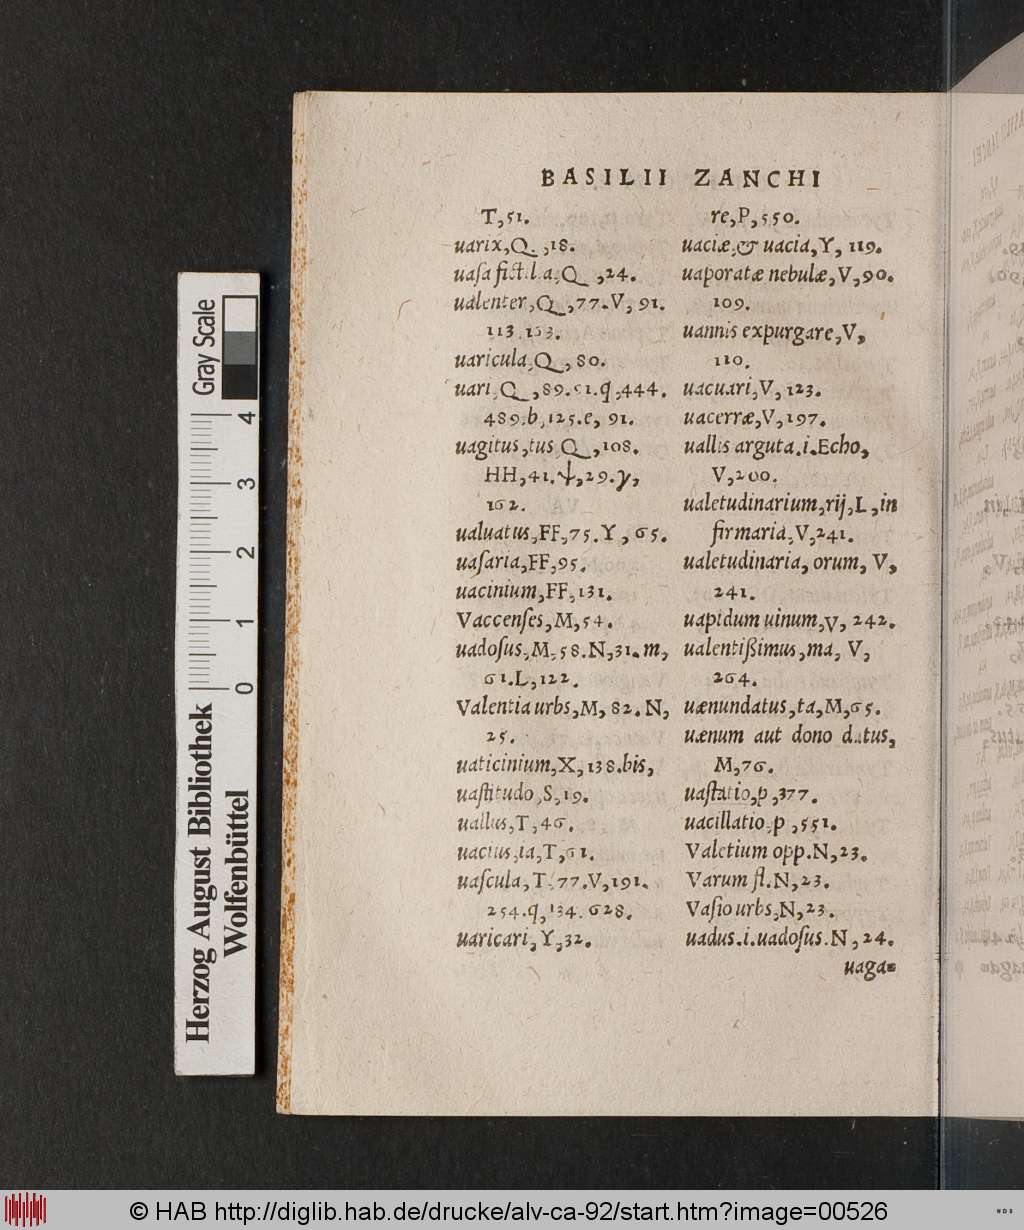 BASILII ZANCHI
T,51.
uarix,Q.,18.
uasa fictilia,Q,24.
ualenter,Q,77.V,91.
113.133.
uaricula,Q,80.
uari,Q,89.51.q,444.
489.b,125.e,91.
uagitus,tus Q,108.
HH,41.ψ,29.γ,
162.
ualuatus,FF,75.Y,65.
uaſaria,FF,95.
uacinium,FF,131.
Vaccenſes,M,54.
uadoſus,M,58.N,31.m,
61.L,122.
Valentia urbs,M,82.N,
25.
uaticinium,X,138.bis,
uaſtitudo,S,19.
uallus,T,46.
uacius,ia,T,61.
uaſcula,T,77.V,191.
254.q,134.628.
uaricari,Y,32.
re,P,550.
uaciæ,& uacia,Y,119.
uaporatæ nebulæ,V,90.
109.
uannis expurgare,V,
110.
uacuari,V,123.
uacerræ,V,197.
uallis arguta.i.Echo,
V,200.
ualetudinarium,rij,L,in
firmaria,V,241.
ualetudinaria, orum, V,
241.
uapidum uinum,V,242.
ualentißimus,ma, V,
264.
uænundatus,ta,M,65.
uænum aut dono datus,
M,76.
uaſtatio,p,377.
uacillatio,p,551.
Valetium opp.N,23.
Varum fl.N,23.
Vaſio urbs,N,23.
uadus.i.uadoſus.N,24.
uaga=
Gray Scale
4
3
2
1
0
Herzog August Bibliothek
Wolfenbüttel
© HAB http://diglib.hab.de/drucke/alv-ca-92/start.htm?image=00526